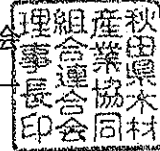 秋田県木材
産業協同
組合連合会
理事長印
会